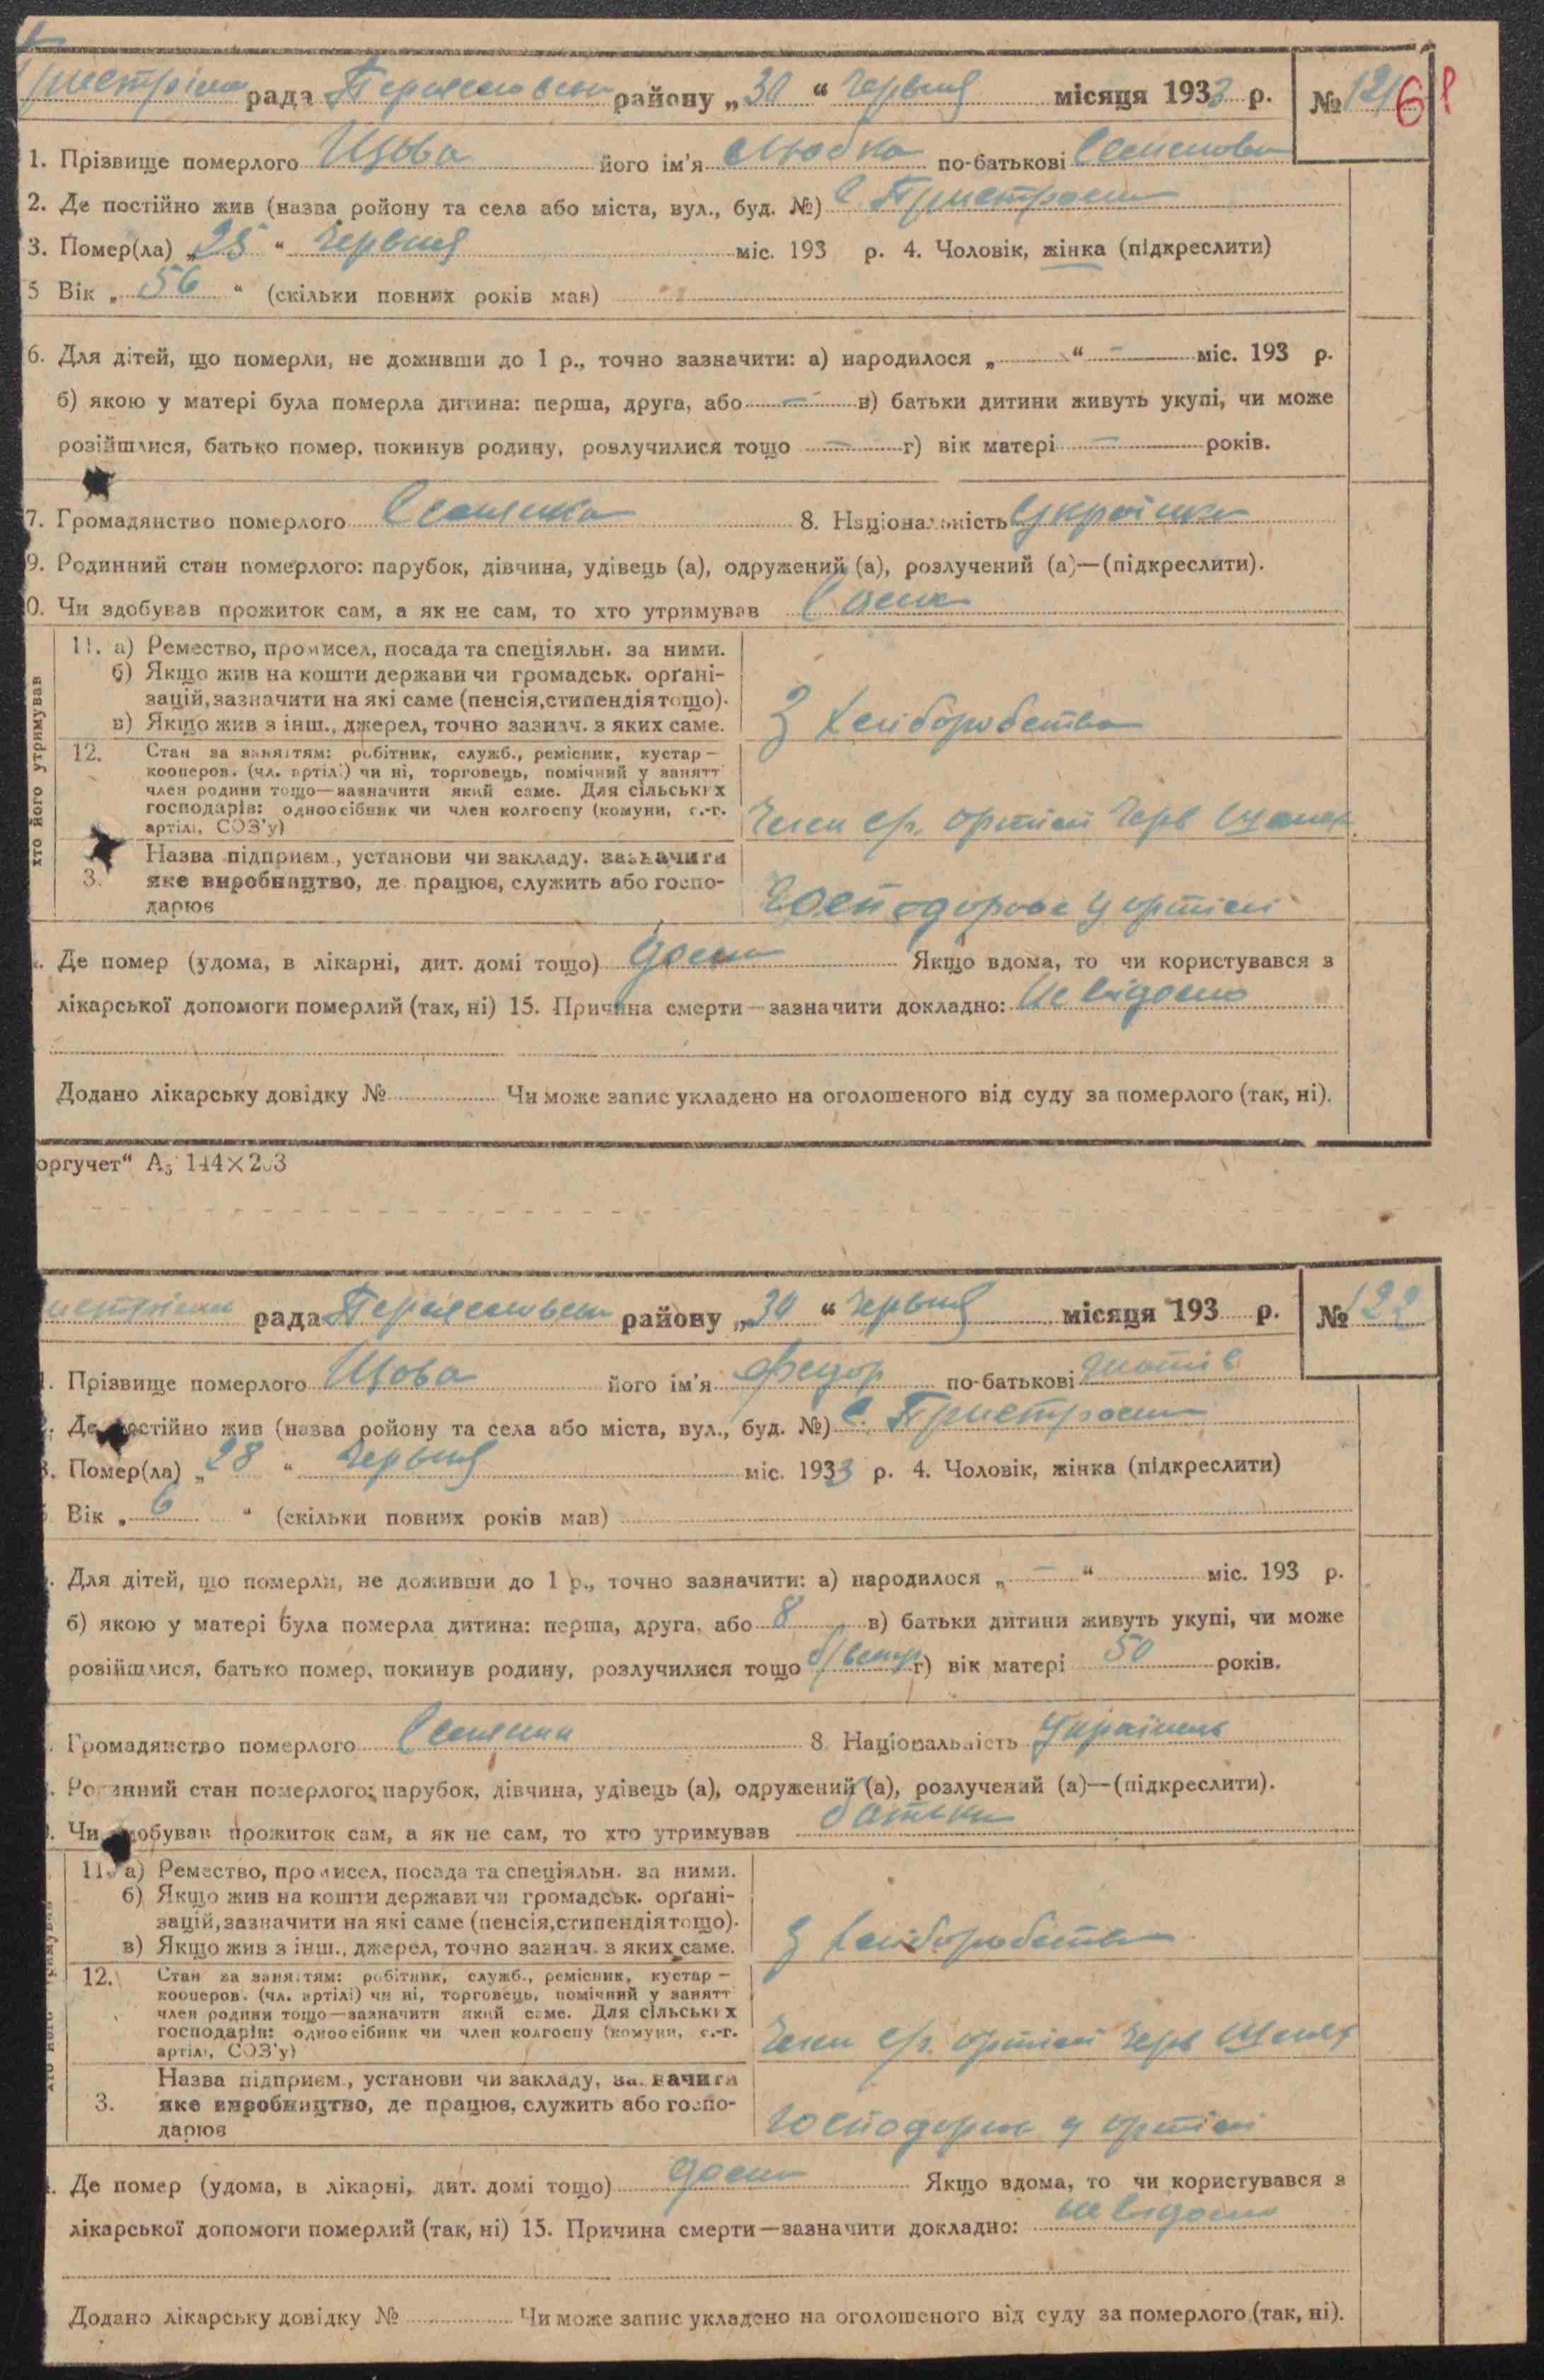 рада Переяславськ району „30 “ червня місяця 1933 р. № 121 61
1. Прізвище померлого Щова його ім'я Любка по-батькові Семенова
2. Де постійно жив (назва ройону та села або міста, вул., буд. №) с. Пристроми
3. Помер(ла) „25 “ Червня міс. 193 р. 4. Чоловік, жінка (підкреслити)
5 Вік „ 56 “ (скільки повних років мав)
6. Для дітей, що померли, не доживши до 1 р., точно зазначити: а) народилося „ “ – міс. 193 р.
б) якою у матері була померла дитина: перша, друга, або – в) батьки дитини живуть укупі, чи може
розійшлися, батько помер, покинув родину, розлучилися тощо – г) вік матері – років.
7. Громадянство померлого Селянка 8. Національність Українка
9. Родинний стан померлого: парубок, дівчина, удівець (а), одружений (а), розлучений (а)—(підкреслити).
0. Чи здобував прожиток сам, а як не сам, то хто утримував Сама
хто його утримував
11. а) Ремество, промисел, посада та спеціяльн. за ними.
б) Якщо жив на кошти держави чи громадськ. орґані-
зацій, зазначити на які саме (пенсія, стипендія тощо).
в) Якщо жив з інш., джерел, точно зазнач. з яких саме.
З хліборобства
12. Стан за заняттям: робітник, служб., ремісник, кустар—
кооперов. (чл. артілі) чи ні, торговець, помічний у занятт
член родини тощо—зазначити який саме. Для сільських
господарів: одноосібник чи член колгоспу (комуни, с.-г.
артілі, СОЗ'у)
Член с/г. артілі Черв
Назва підприєм., установи чи закладу, зазначити
3. яке виробництво, де працює, служить або госпо-
дарює
Господарює у артілі
Де помер (удома, в лікарні, дит. домі тощо) дома Якщо вдома, то чи користувався з
лікарської допомоги померлий (так, ні) 15. Причина смерти—зазначити докладно: Не відомо
Додано лікарську довідку № Чи може запис укладено на оголошеного від суду за померлого (так, ні).
оргучет“ А₅ 144×203
рада Переяславськ району „30 “ червня місяця 193 р. № 122
1. Прізвище померлого Щова його ім'я Федор по-батькові
Де постійно жив (назва ройону та села або міста, вул., буд. №) с. Пристроми
3. Помер(ла) „28 “ Червня міс. 1933 р. 4. Чоловік, жінка (підкреслити)
Вік „ 6 “ (скільки повних років мав)
Для дітей, що померли, не доживши до 1 р., точно зазначити: а) народилося „ – “ міс. 193 р.
б) якою у матері була померла дитина: перша, друга, або 8 в) батьки дитини живуть укупі, чи може
розійшлися, батько помер, покинув родину, розлучилися тощо г) вік матері 50 років.
Громадянство померлого Селянин 8. Національність Українець
Родинний стан померлого: парубок, дівчина, удівець (а), одружений (а), розлучений (а)—(підкреслити).
Чи здобував прожиток сам, а як не сам, то хто утримував батьки
11. а) Ремество, промисел, посада та спеціяльн. за ними.
б) Якщо жив на кошти держави чи громадськ. орґані-
зацій, зазначити на які саме (пенсія, стипендія тощо).
в) Якщо жив з інш., джерел, точно зазнач. з яких саме.
З хліборобства
12. Стан за заняттям: робітник, служб., ремісник, кустар—
кооперов. (чл. артілі) чи ні, торговець, помічний у занятт
член родини тощо—зазначити який саме. Для сільських
господарів: одноосібник чи член колгоспу (комуни, с.-г.
артілі, СОЗ'у)
Член с/г. артілі Черв
Назва підприєм., установи чи закладу, зазначити
3. яке виробництво, де працює, служить або госпо-
дарює
Господарює у артілі
Де помер (удома, в лікарні, дит. домі тощо) дома Якщо вдома, то чи користувався з
лікарської допомоги померлий (так, ні) 15. Причина смерти—зазначити докладно: не відомо
Додано лікарську довідку № Чи може запис укладено на оголошеного від суду за померлого (так, ні).